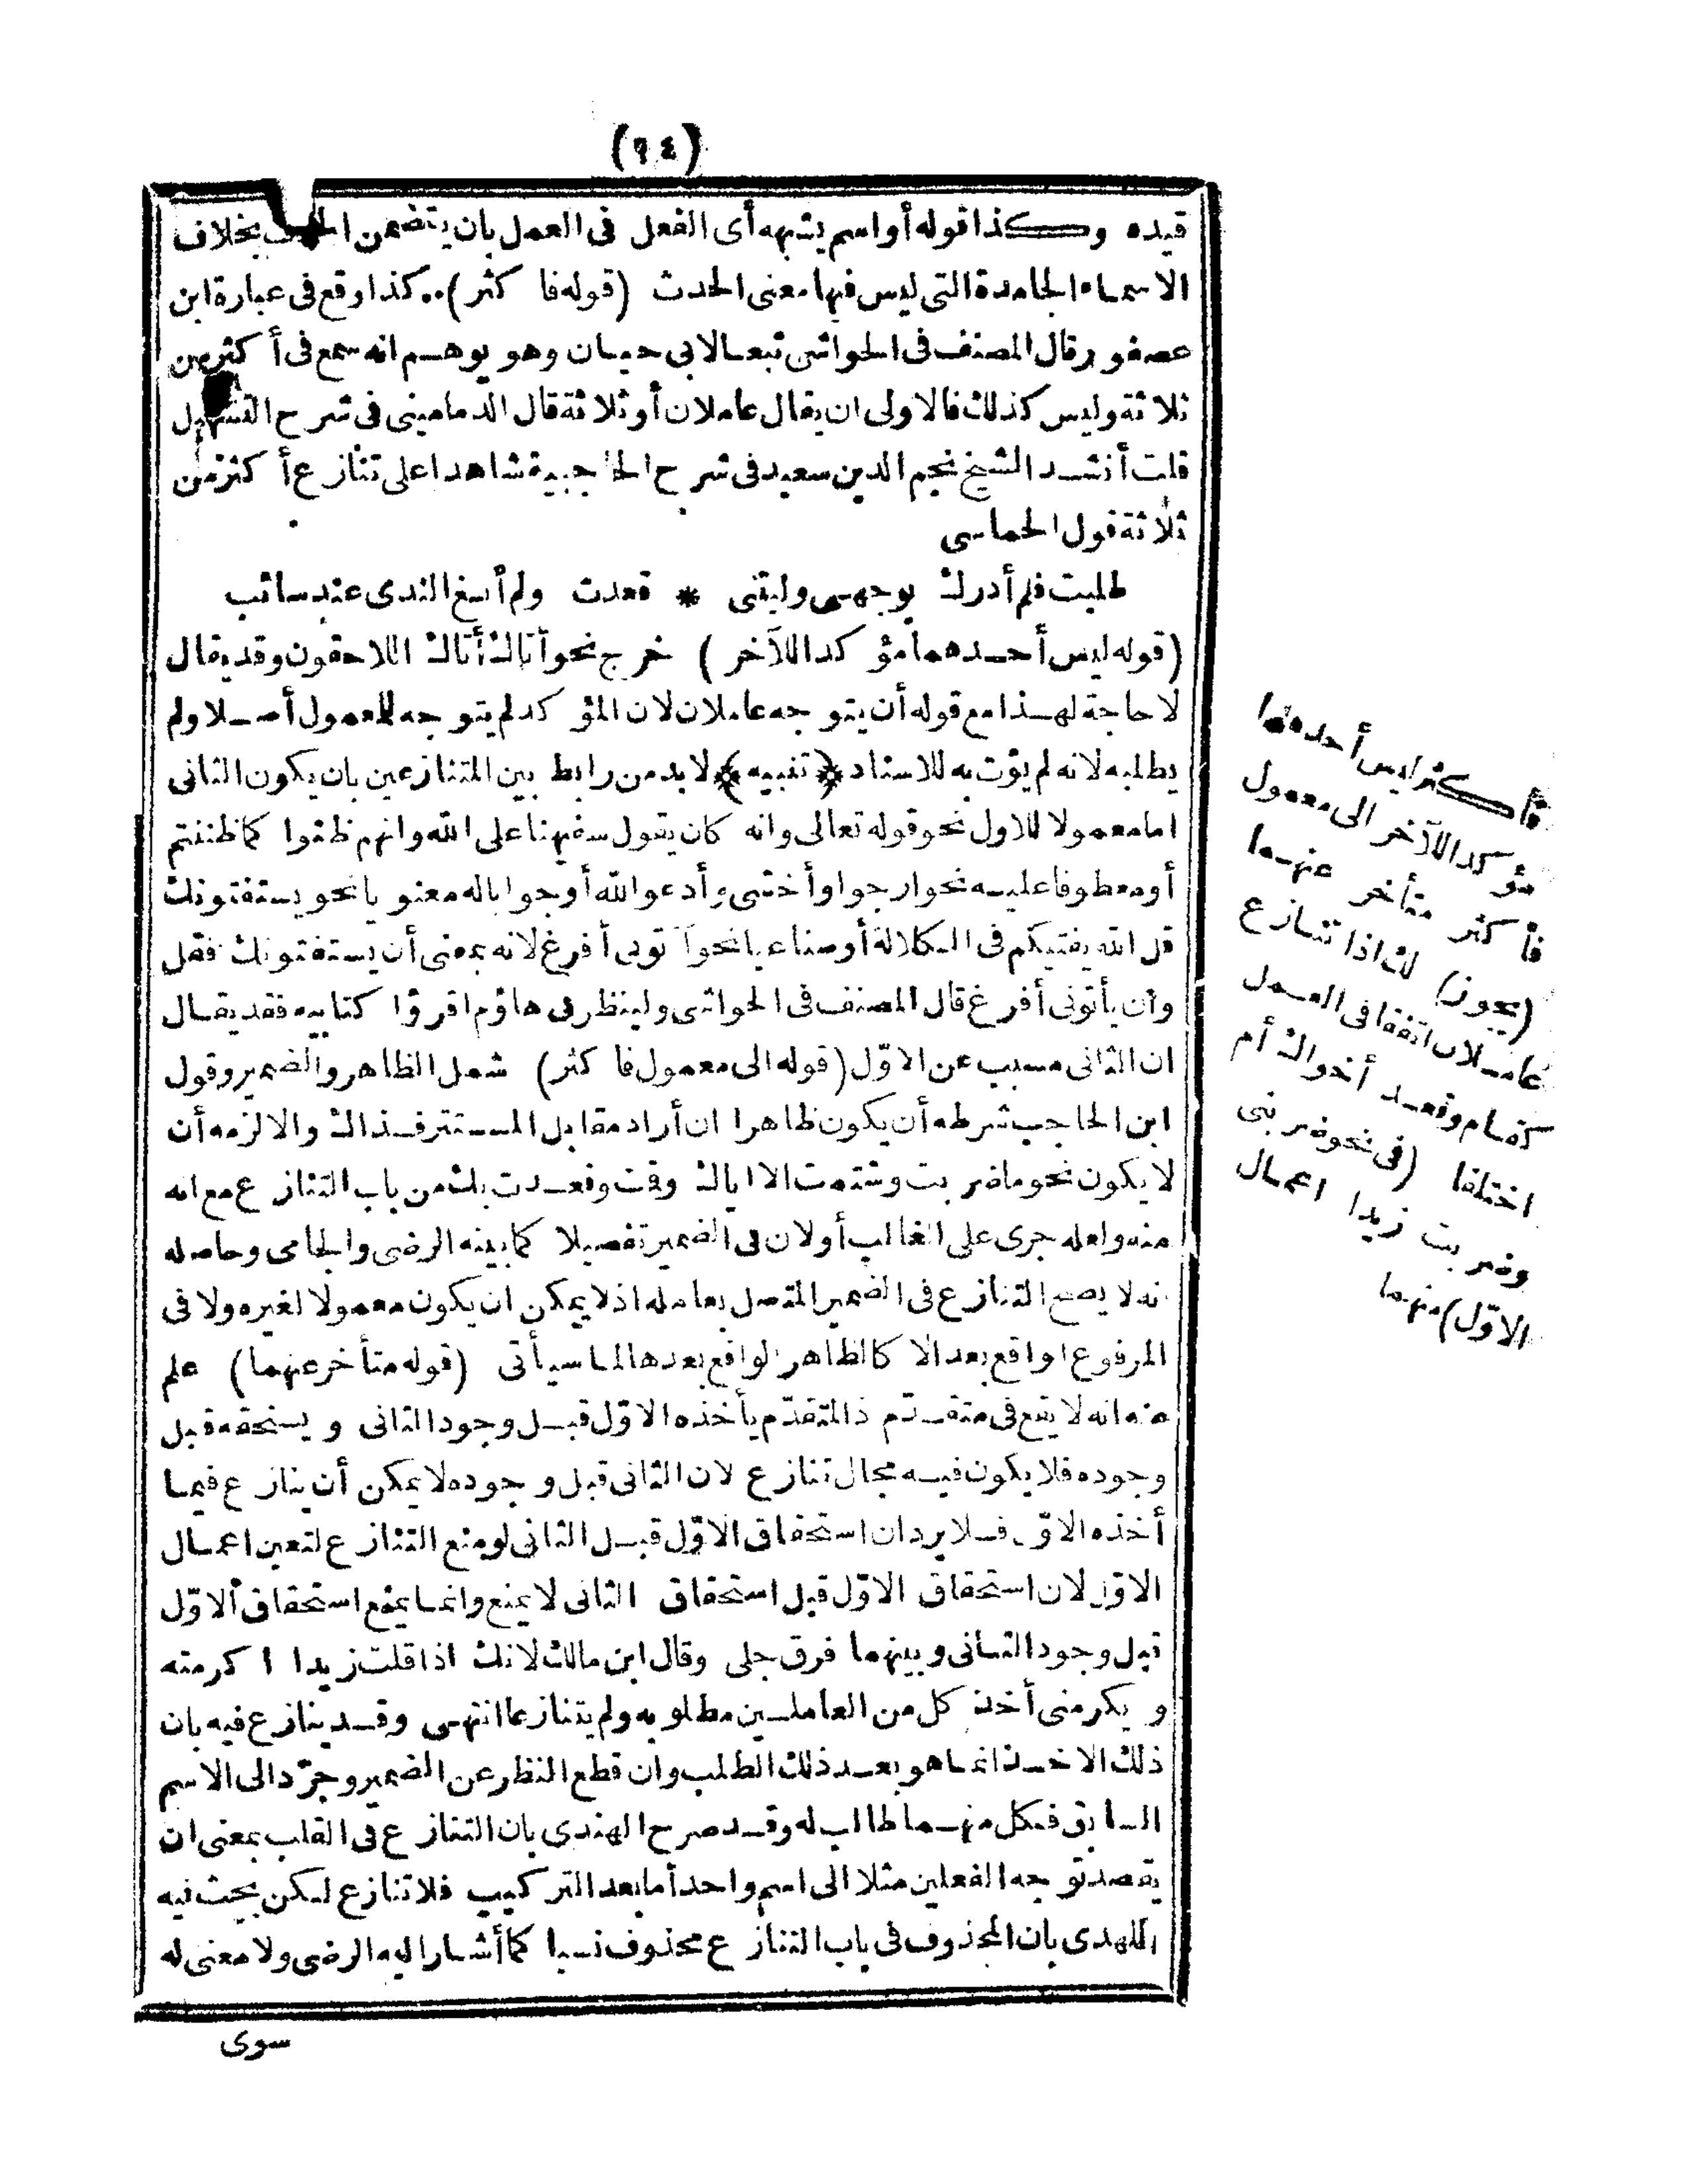 (٩٤)
قيده وكذا قوله أو اسم يشبهه أى الفعل فى العمل بان يتضمن الحدث بخلاف
الاسماء الجامدة التى ليس فيها معنى الحدث (قوله فا كثر).. كذا وقع فى عبارة ابن
عصفور وقال المصنف فى الحواشى تبعا لابى حيان وهو يوهم انه سمع فى أكثر من
ثلاثة وليس كذلك فالاولى ان يقال عاملان أو ثلاثة قال الدمامينى فى شرح التسهيل
قلت أنشد الشيخ نجم الدين سعيد فى شرح الحاجبية شاهدا على تنازع أكثر من
ثلاثة قول الحماسى
طلبت فلم أدرك بوجهى وليتنى * قعدت ولم أبغ الندى عند سائب
(قوله ليس أحدهما مؤكد اللآخر) خرج نحو أتاك أتاك اللاحقون وقد يقال
لا حاجة لهذا مع قوله أن يتوجه عاملان لان المؤكد لم يتوجه للعمول أصلا ولم
يطلبه لانه لم يؤت به للاسناد ﴿تنبيه﴾ لابد من رابط بين المتنازعين بان يكون الثانى
اما معمولا للاول نحو قوله تعالى وانه كان يقول سفيهنا على الله وانهم ظنوا كما ظننتم
أو معطوفا عليه نحو ارجوا وأخشى وأدعو الله أو جوابا له معنويا نحو يستفتونك
قل الله يفتيكم فى الكلالة أو صناعيا نحو آتونى أفرغ لانه بمعنى أن يستفتونك فقل
وان يأتونى أفرغ قال المصنف فى الحواشى ولينظر فى هاؤم اقرؤا كتابيه فقد يقال
ان الثانى مسبب عن الاوّل (قوله الى معمول فا كثر) شمل الظاهر والضمير وقول
ابن الحاجب شرطه أن يكون ظاهرا ان أراد مقابل المستتر فذاك والا لزمه أن
لا يكون نحو ماضربت وشتمت الا اياك وقت وقعدت بك من باب التنازع مع انه
منه ولعله جرى على الغالب أو لان فى الضمير تفصيلا كما بينه الرضى والجامى وحاصله
انه لا يصح التنازع فى الضمير المتصل بعامله اذ لا يمكن ان يكون معمولا لغيره ولا فى
المرفوع الواقع بعد الا كالظاهر الواقع بعدها لما سيأتى (قوله متأخر عنهما) علم
منه انه لا يقع فى متقدّم اذ المتقدّم يأخذه الاوّل قبل وجود الثانى ويستحقه قبل
وجوده فلا يكون فيه مجال تنازع لان الثانى قبل وجوده لا يمكن أن ينازع فيما
أخذه الاوّل فلا يرد ان استحقاق الاوّل قبل الثانى لو منع التنازع لتعين اعمال
الاوّل لان استحقاق الاوّل قبل استحقاق الثانى لا يمنع وانما يمنع استحقاق الاوّل
قبل وجود الثانى وبينهما فرق جلى وقال ابن مالك لانك اذا قلت زيدا اكرمته
ويكرمنى أخذ كل من العاملين مطلوبه ولم يتنازعا انتهى وقد ينازع فيه بان
ذلك الاخذ انما هو بعد ذلك الطلب وان قطع النظر عن الضمير وجرّد الى الاسم
السابق فكل منهما طالب له وقد صرح الهندى بان التنازع فى القلب بمعنى ان
يقصد توجه الفعلين مثلا الى اسم واحد أما بعد التركيب فلا تنازع لكن بحث فيه
اللهدى بان المحذوف فى باب التنازع محذوف نسيا كما أشار اليه الرضى ولا معنى له
سوى
فأكثر ليس أحدهما
مؤكد اللآخر الى معمول
فأكثر متأخر عنهما
(يجوز) لك اذا تنازع
عاملان اتفقا فى العمل
كقام وقعد أخواك أم
اختلفا (فى نحو ضربنى
وضربت زيدا اعمال
الاوّل) منهما